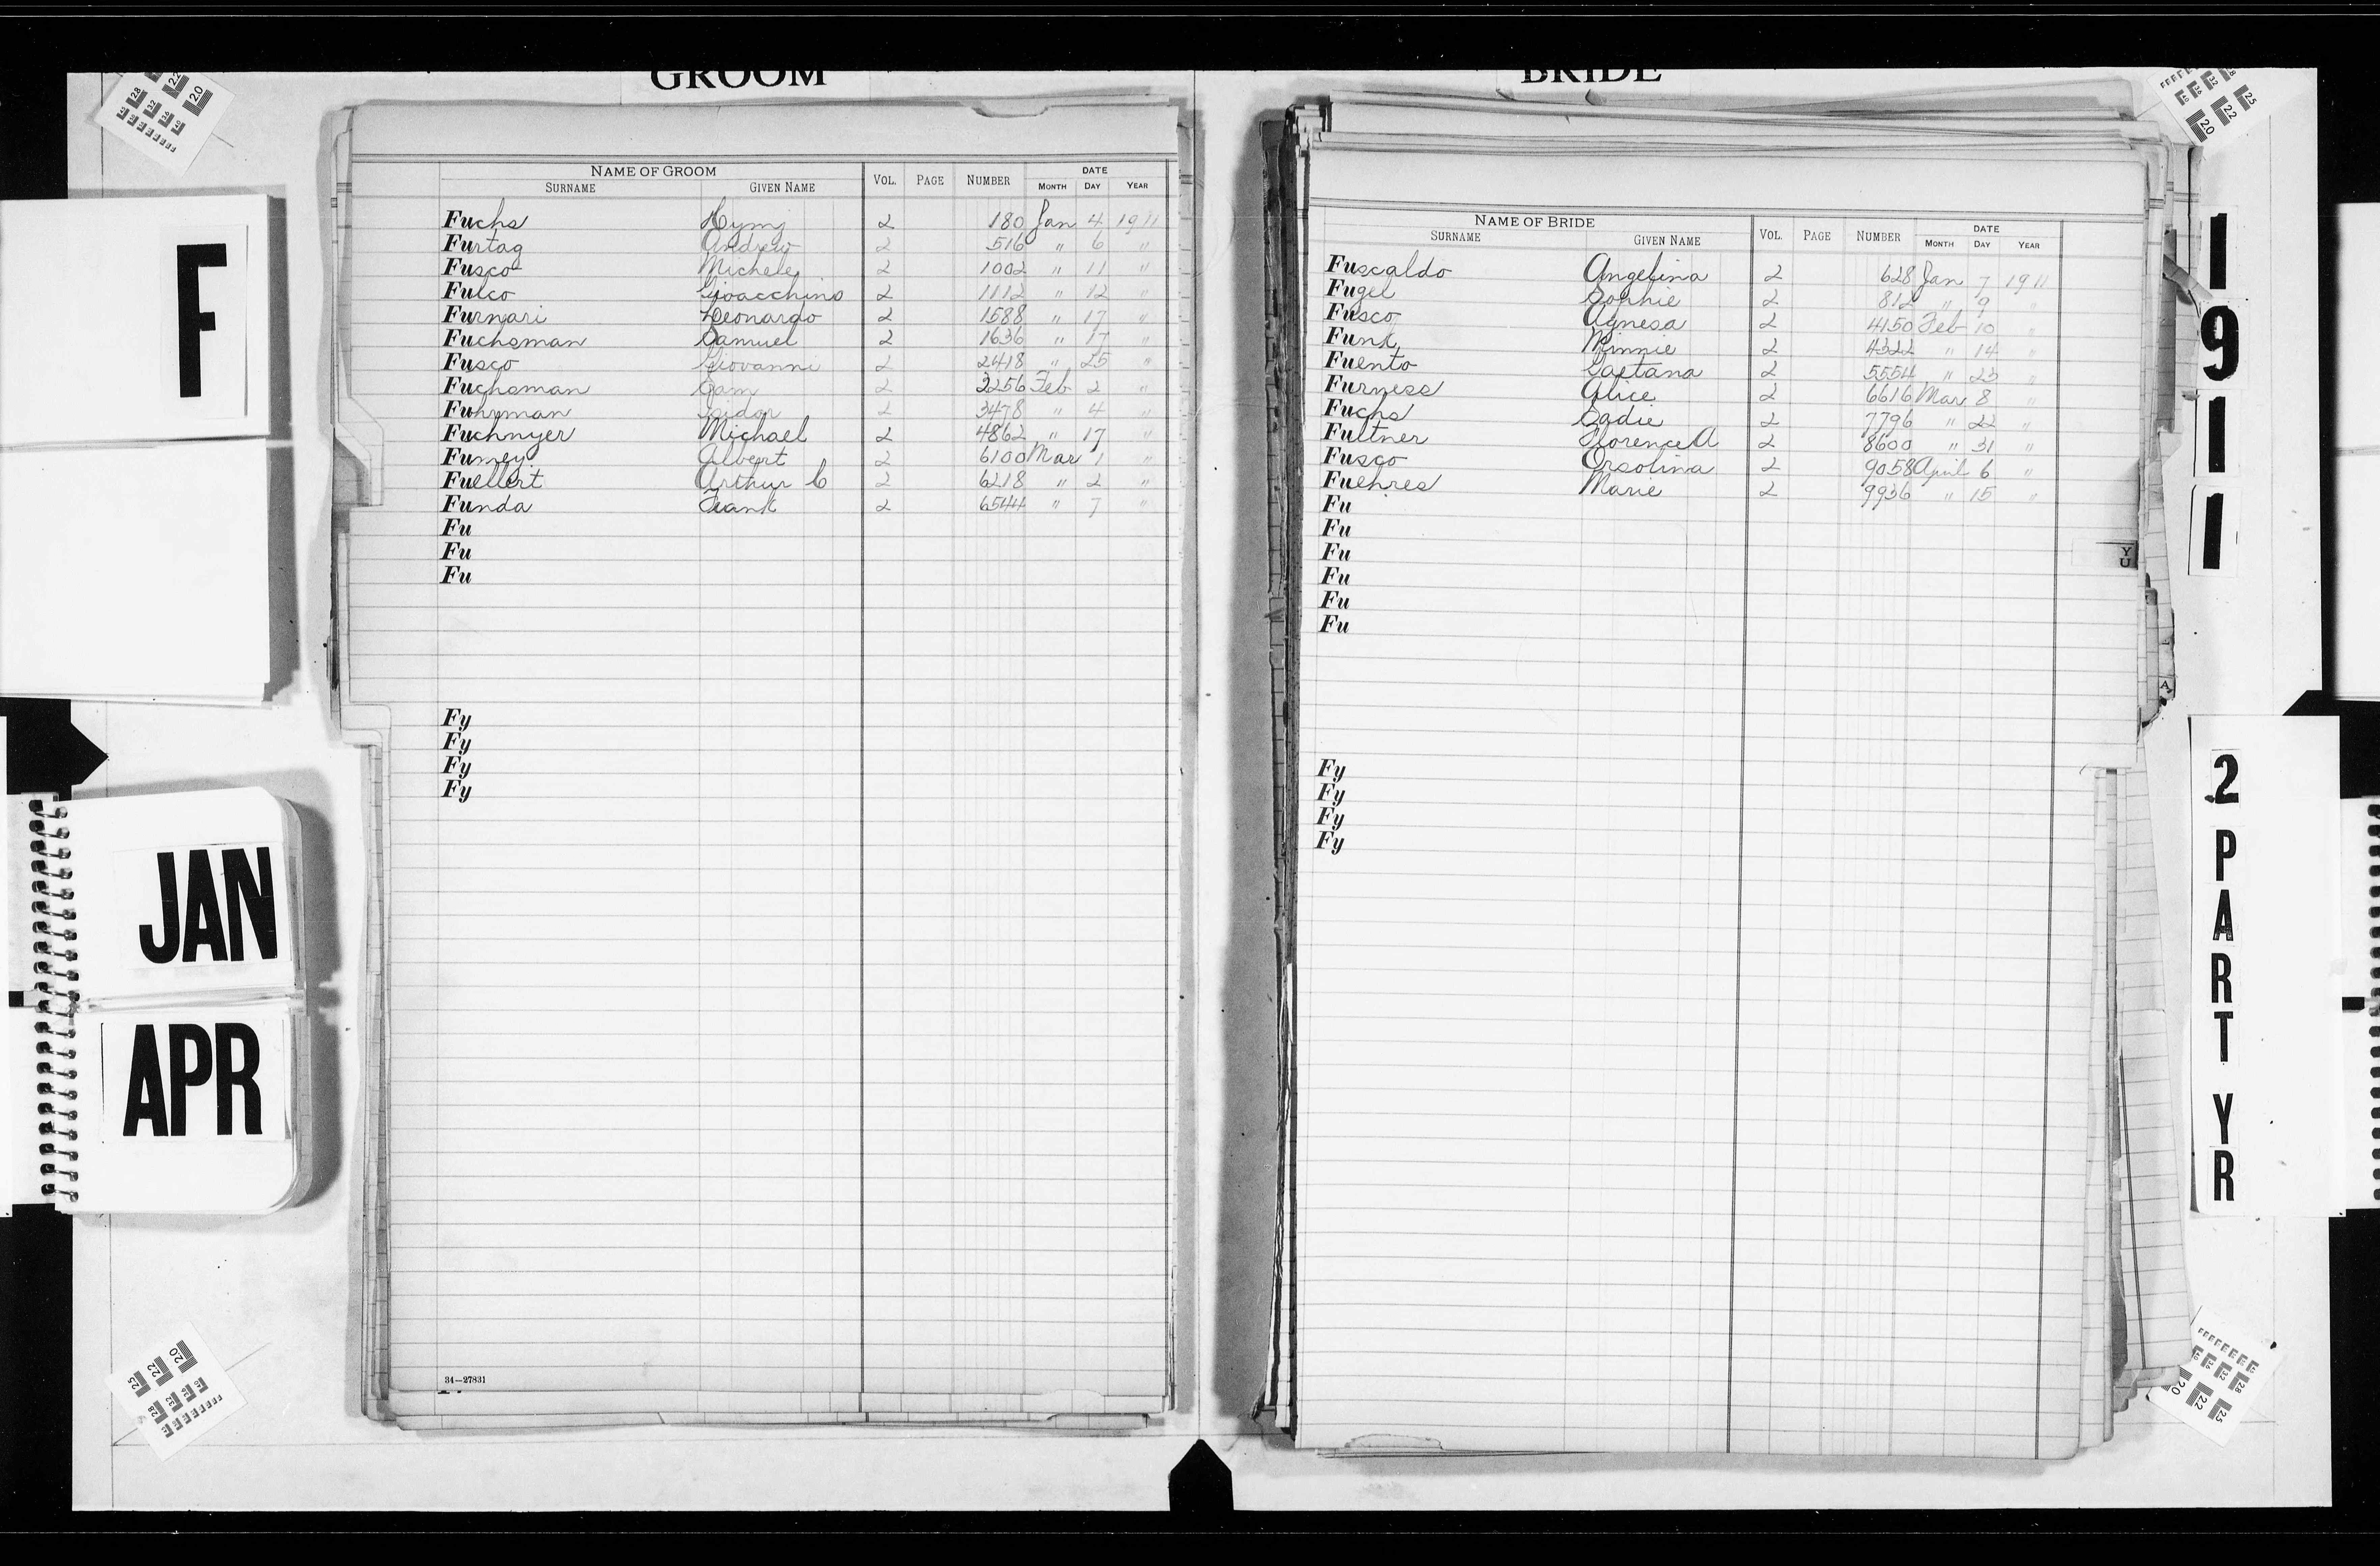 GROOM
NAME OF GROOM VOL. PAGE NUMBER DATE
SURNAME GIVEN NAME MONTH DAY YEAR
Fuchs Hymj 2 180 Jan 4 1911
Furtag Andrew 2 516 " 6 "
Fusco Michele 2 1002 " 11 "
Fulco Gioacchino 2 1112 " 12 "
Furnari Leonardo 2 1588 " 17 "
Fuchsman Samuel 2 1636 " 17 "
Fusco Giovanni 2 2418 " 25 "
Fuchsman Sam 2 3256 Feb 2 "
Fuhrman Isidor 2 3478 " 4 "
Fuchnyer Michael 2 4862 " 17 "
Fumey Albert 2 6100 Mar 1 "
Fuellert Arthur C 2 6218 " 2 "
Funda Frank 2 6544 " 7 "
Fu
Fu
Fu
Fy
Fy
Fy
Fy
34—27831
BRIDE
NAME OF BRIDE VOL. PAGE NUMBER DATE
SURNAME GIVEN NAME MONTH DAY YEAR
Fuscaldo Angelina 2 628 Jan 7 1911
Fugel Sophie 2 812 " 9 "
Fusco Agnesa 2 4150 Feb 10 "
Funk Minnie 2 4322 " 14 "
Fuento Gaetana 2 5554 " 23 "
Furness Alice 2 6616 Mar 8 "
Fuchs Sadie 2 7796 " 22 "
Fultner Florence A 2 8600 " 31 "
Fusco Orsolina 2 9058 April 6 "
Fuehres Marie 2 9936 " 15 "
Fu
Fu
Fu
Fu
Fu
Fu
Fy
Fy
Fy
Fy
Y
U
F
JAN
APR
1911
2
PART
YR